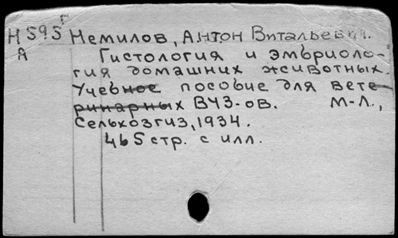 Г
Н 595 Немилов, Антон Витальевич.
А Гистология и эмбриоло-
гия домашних животных.
Учебное пособие для вете-
ринарных ВУЗ-ов. М-Л.,
Сельхозгиз, 1934.
465 стр. с илл.